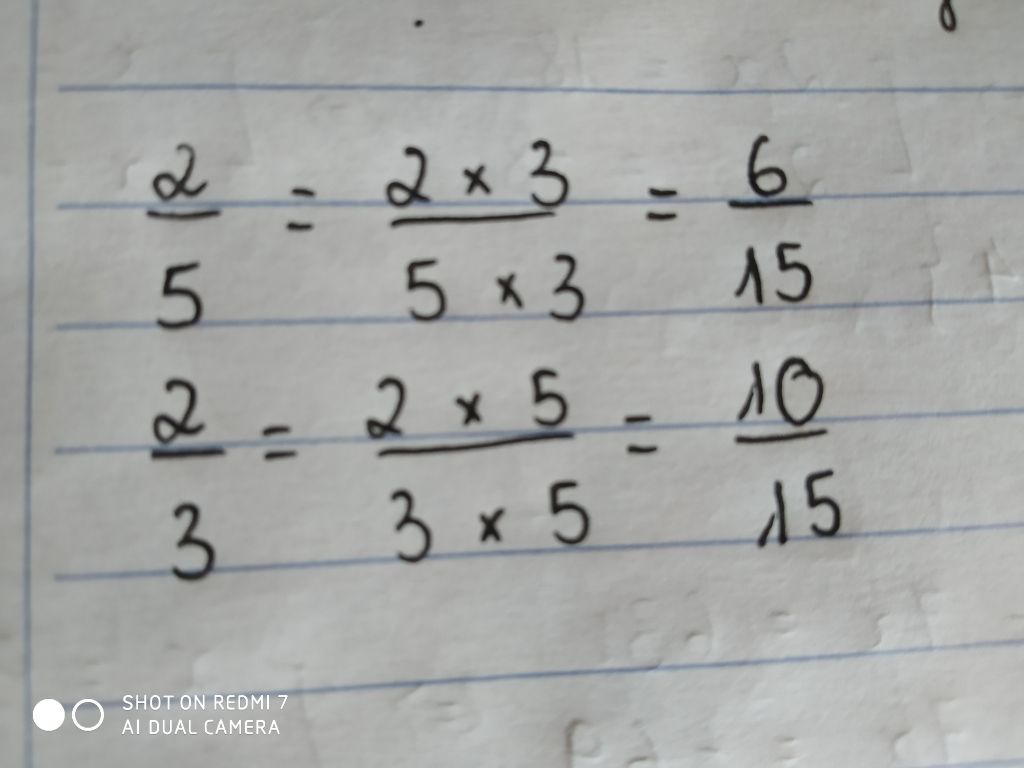 2/5 = 2 × 3/5 × 3 = 6/15
2/3 = 2 × 5/3 × 5 = 10/15
SHOT ON REDMI 7
AI DUAL CAMERA